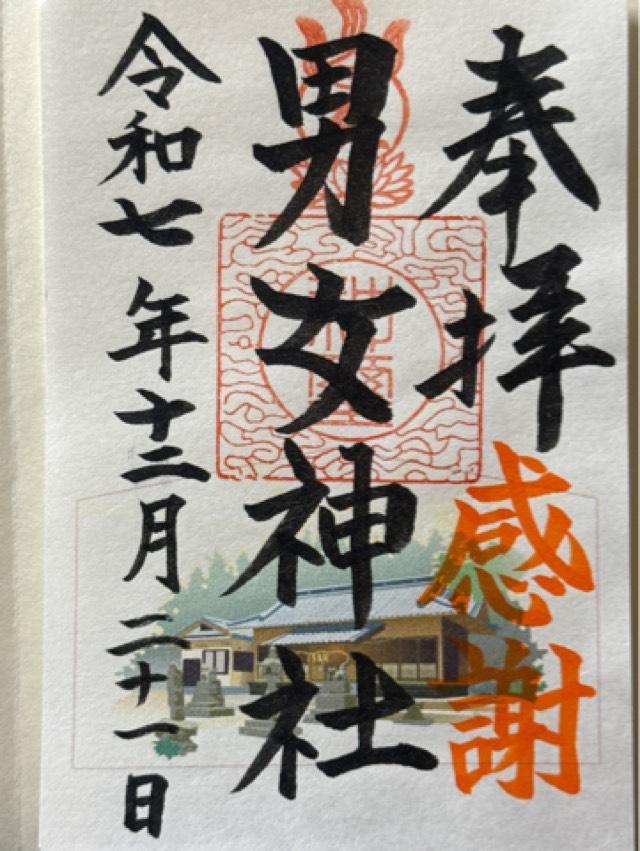 奉拝
感謝
男女神社
令和七年十二月二十一日